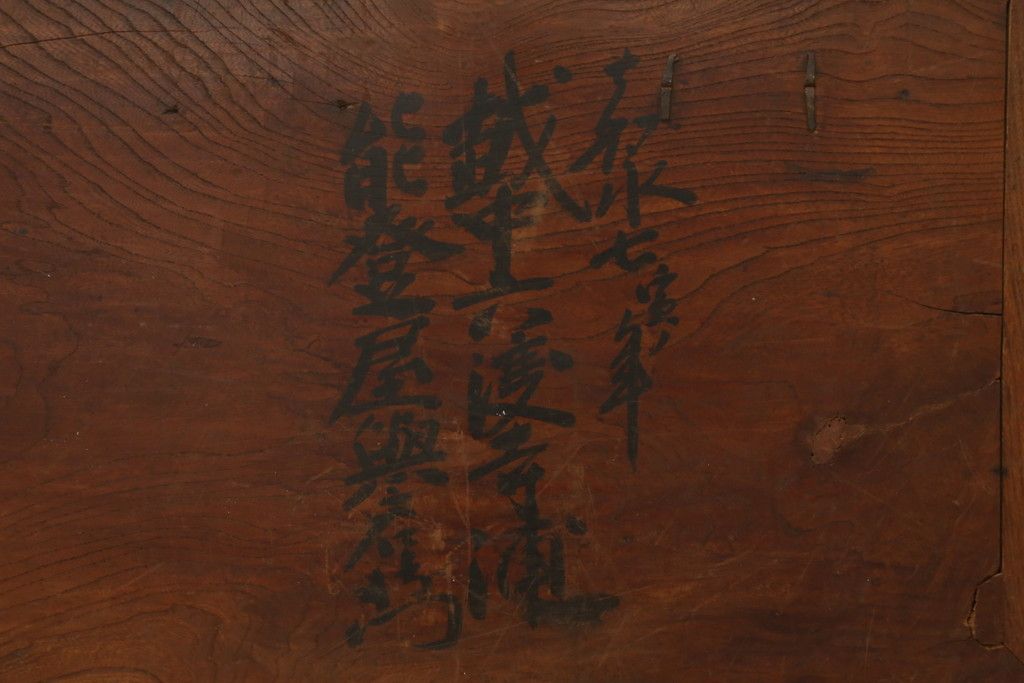 嘉永七寅年
越中六渡寺浦
能登屋與